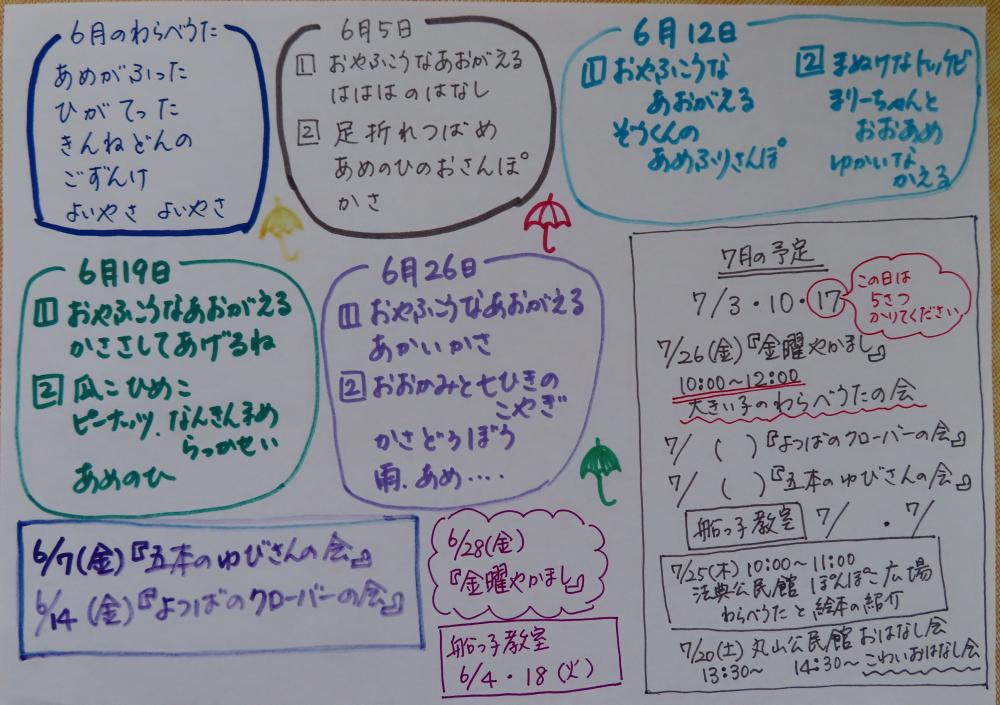 6月のわらべうた
あめがふった
ひがてった
きんねどんの
ごずんけ
よいやさ よいやさ
6月5日
1 おやふこうなあおがえる
はははのはなし
2 足折れつばめ
あめのひのおさんぽ
かさ
6月12日
1 おやふこうな
あおがえる
ぞうくんの
あめふりさんぽ
2 まぬけなトッケビ
まりーちゃんと
おおあめ
ゆかいな
かえる
6月19日
1 おやふこうなあおがえる
かささしてあげるね
2 瓜こひめこ
ピーナッツ、なんきんまめ
らっかせい
あめのひ
6月26日
1 おやふこうなあおがえる
あかいかさ
2 おおかみと七ひきの
こやぎ
かさどろぼう
雨、あめ‥‥
6/7(金)『五本のゆびさんの会』
6/14(金)『よつばのクローバーの会』
6/28(金)
『金曜やかまし』
船っ子教室
6/4・18(火)
7月の予定
7/3・10・17
この日は
5さつ
かりてください
7/26(金)『金曜やかまし』
10:00～12:00
大きい子のわらべうたの会
7/ ( )『よつばのクローバーの会』
7/ ( )『五本のゆびさんの会』
船っ子教室 7/ ・7/
7/25(木) 10:00～11:00
法典公民館 ぽんぽこ広場
わらべうたと絵本の紹介
7/20(土) 丸山公民館 おはなし会
13:30～ 14:30～こわいおはなし会